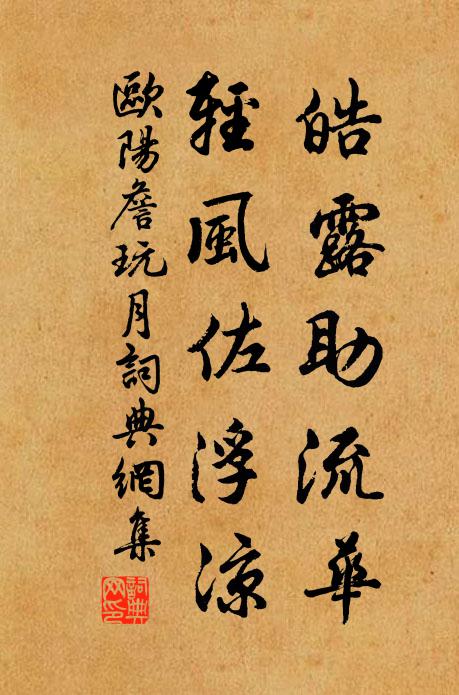 皓露助流華
輕風佐浮涼
歐陽詹玩月詞典網集
詞典網印